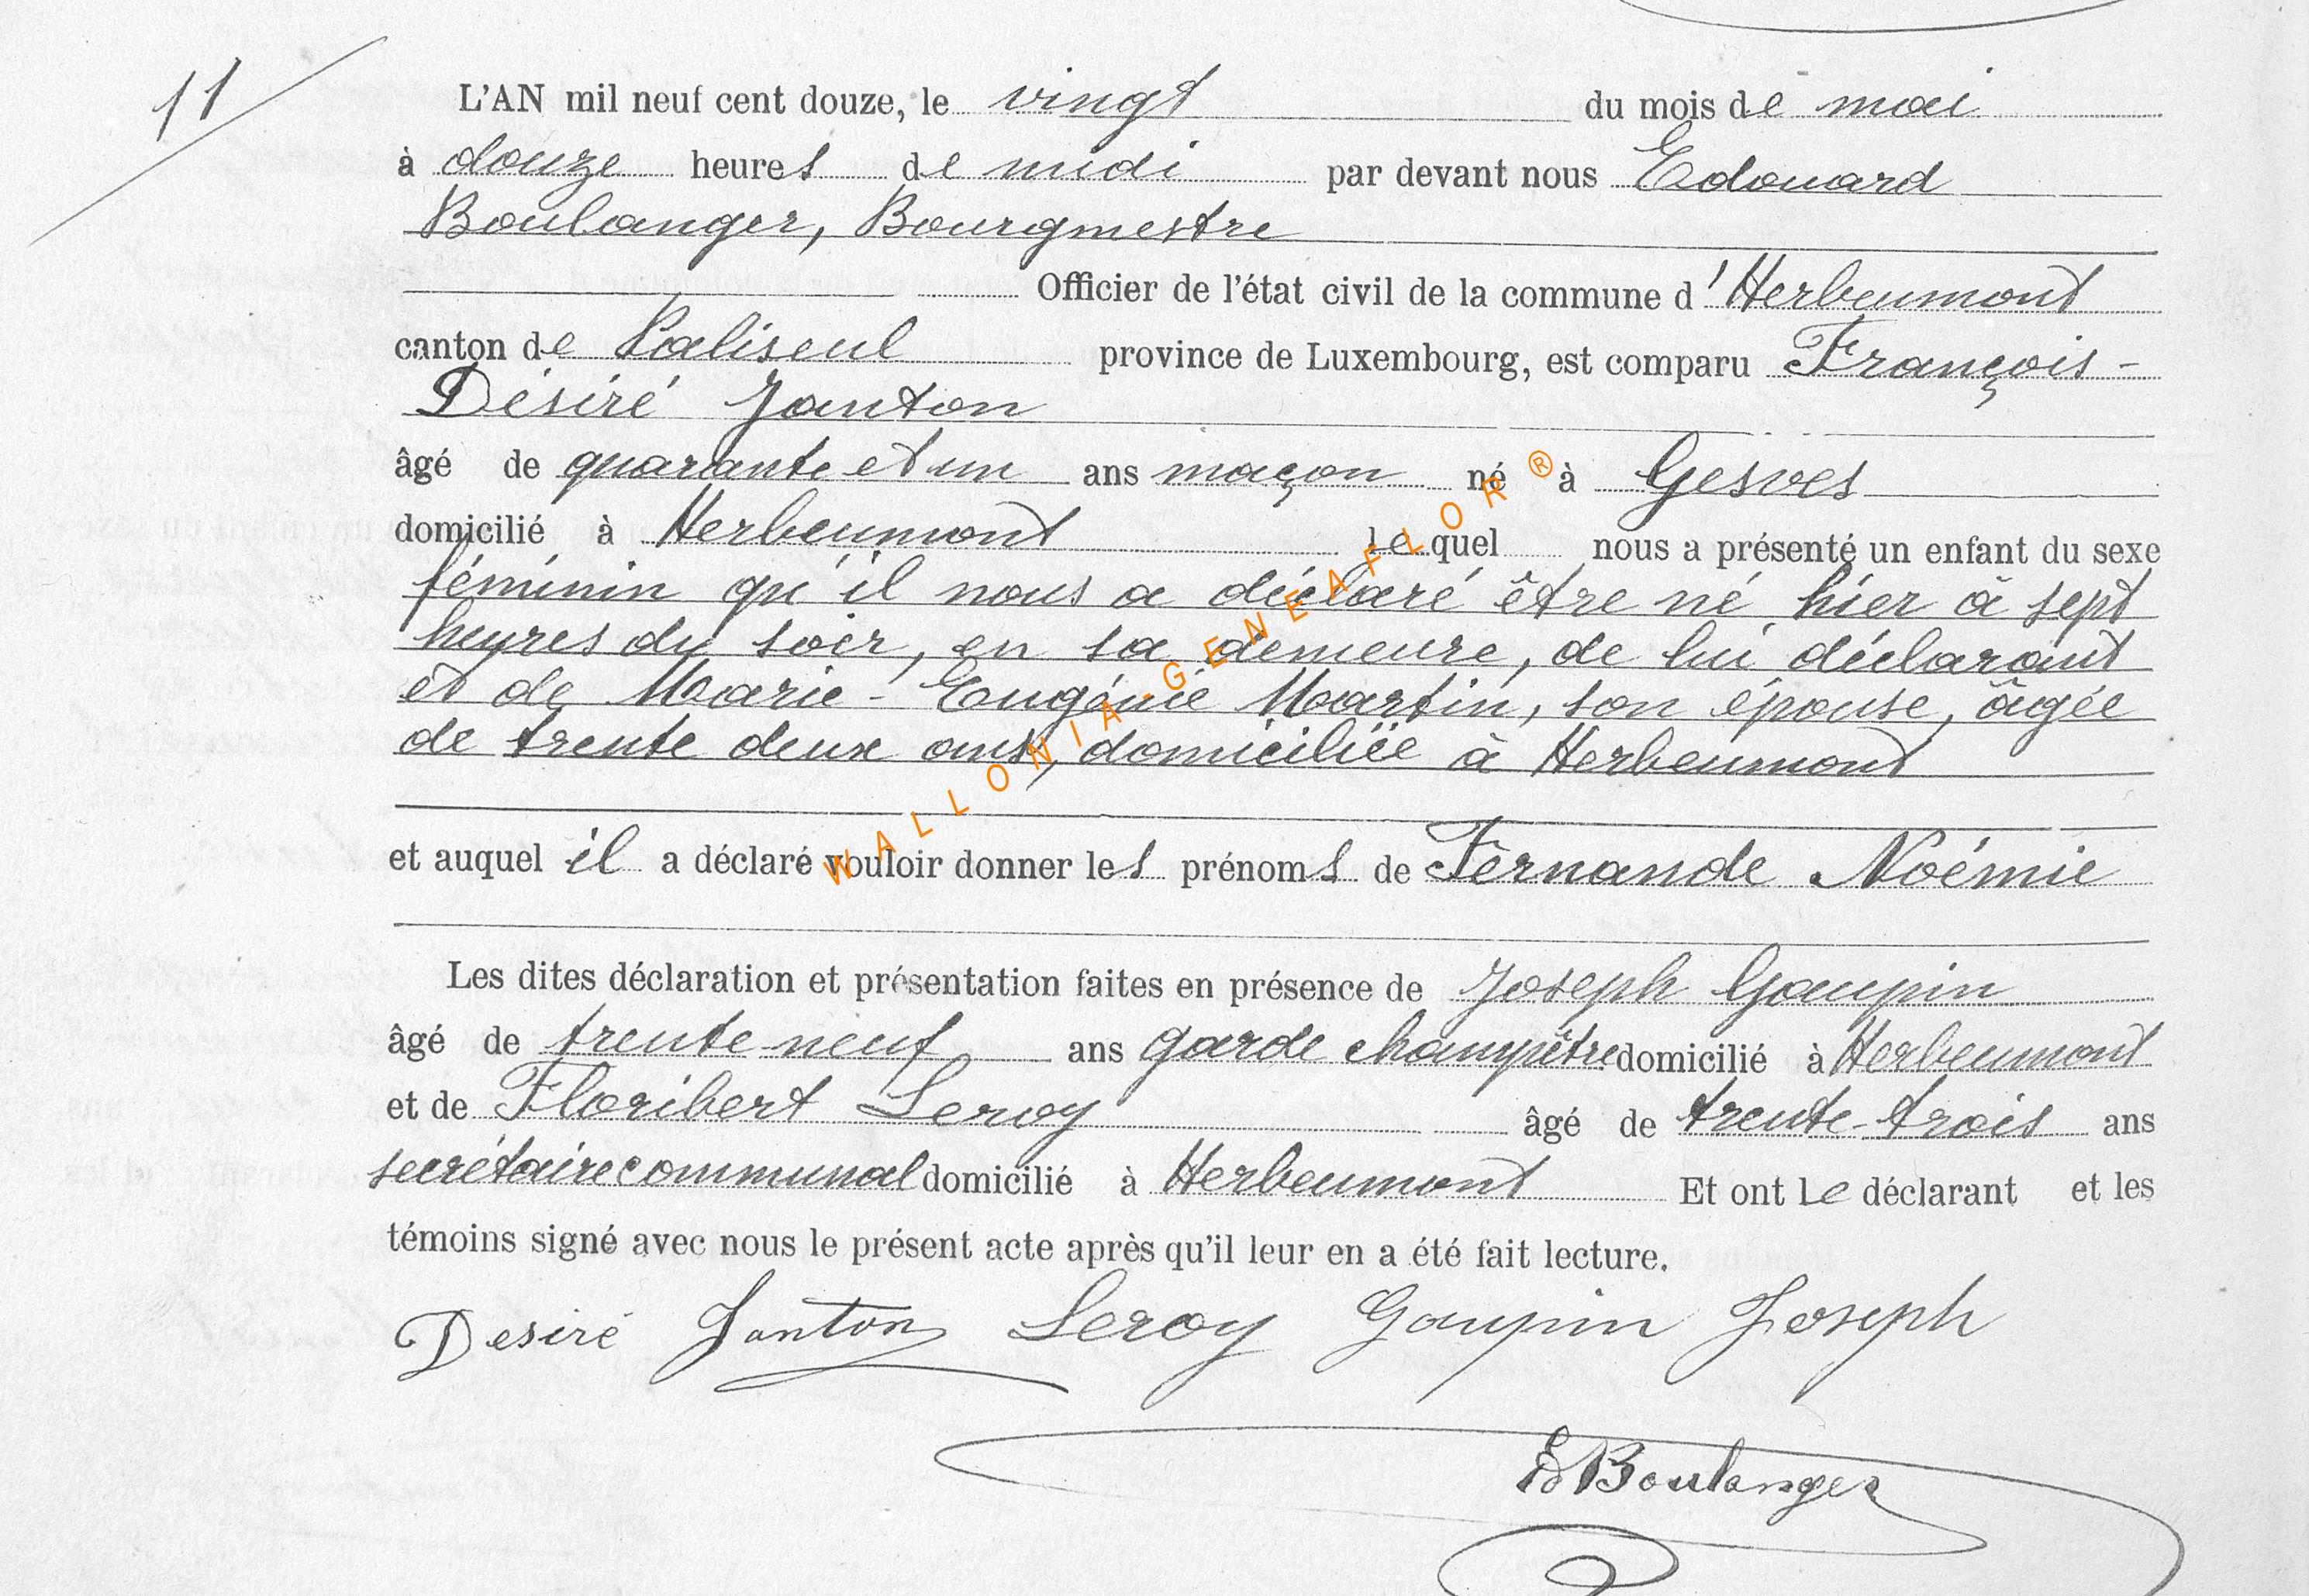 11
L'AN mil neuf cent douze, le vingt du mois de mai
à douze heures de midi par devant nous Edouard
Boulanger, Bourgmestre
Officier de l'état civil de la commune d'Herbeumont
canton de Paliseul province de Luxembourg, est comparu François-
Désiré Janton
âgé de quarante et un ans maçon né à Gesves
domicilié à Herbeumont lequel nous a présenté un enfant du sexe
féminin qu'il nous a déclaré être né hier à sept
heures du soir, en sa demeure, de lui déclarant
et de Marie-Eugénie Martin, son épouse, âgée
de trente deux ans, domiciliée à Herbeumont
et auquel il a déclaré vouloir donner les prénoms de Fernande Noémie
Les dites déclaration et présentation faites en présence de Joseph Goupin
âgé de trente-neuf ans garde champêtre domicilié à Herbeumont
et de Floribert Leroy âgé de trente-trois ans
secrétaire communal domicilié à Herbeumont Et ont le déclarant et les
témoins signé avec nous le présent acte après qu'il leur en a été fait lecture.
Desiré Janton Leroy Goupin Joseph
Ed Boulanger
WALLONIA-GENEAFLOR ®